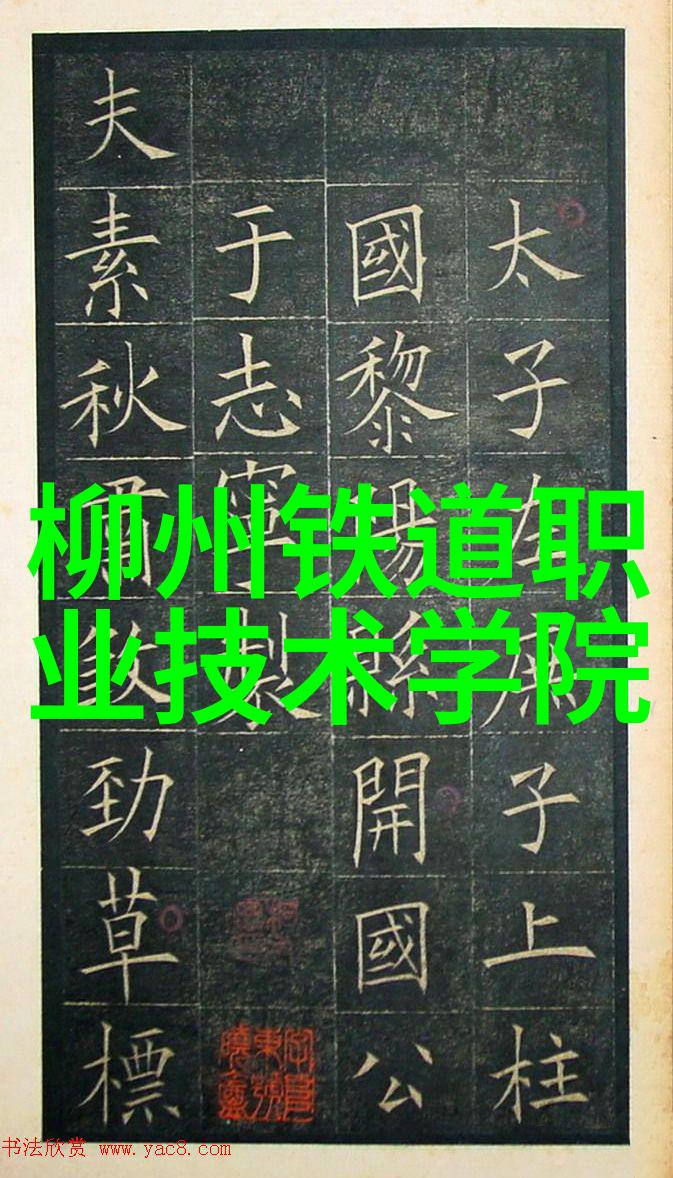 太子左庶子上柱
國黎陽縣開國公
于志寧製
夫素秋肅煞勁草標
柳州铁道职
业技术学院
书法欣赏 www.yac8.com